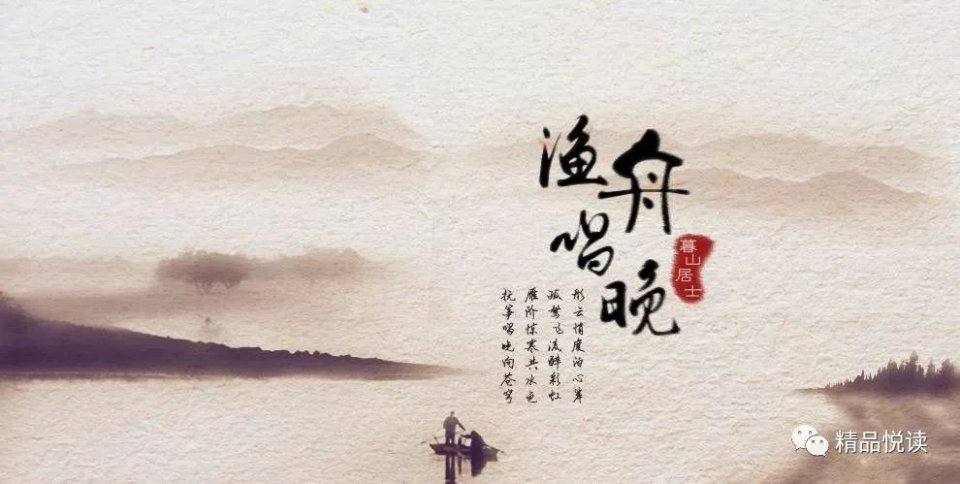 渔舟唱晚
暮山居士
彤云悄度泊心岸
孤鹜飞凌醉彩虹
雁阵惊寒共水色
抚筝唱晚向苍穹
精品悦读